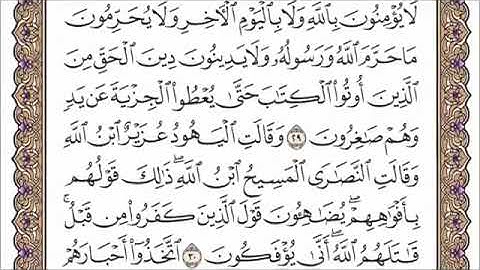 لَا يُؤْمِنُونَ بِٱللَّهِ وَلَا بِٱلْيَوْمِ ٱلْآخِرِ وَلَا يُحَرِّمُونَ
مَا حَرَّمَ ٱللَّهُ وَرَسُولُهُۥ وَلَا يَدِينُونَ دِينَ ٱلْحَقِّ مِنَ
ٱلَّذِينَ أُوتُوا۟ ٱلْكِتَٰبَ حَتَّىٰ يُعْطُوا۟ ٱلْجِزْيَةَ عَن يَدٍ
وَهُمْ صَٰغِرُونَ ٢٩ وَقَالَتِ ٱلْيَهُودُ عُزَيْرٌ ٱبْنُ ٱللَّهِ
وَقَالَتِ ٱلنَّصَٰرَى ٱلْمَسِيحُ ٱبْنُ ٱللَّهِ ۖ ذَٰلِكَ قَوْلُهُم
بِأَفْوَٰهِهِمْ ۖ يُضَٰهِـُٔونَ قَوْلَ ٱلَّذِينَ كَفَرُوا۟ مِن قَبْلُ ۚ
قَٰتَلَهُمُ ٱللَّهُ ۚ أَنَّىٰ يُؤْفَكُونَ ٣٠ ٱتَّخَذُوٓا۟ أَحْبَارَهُمْ